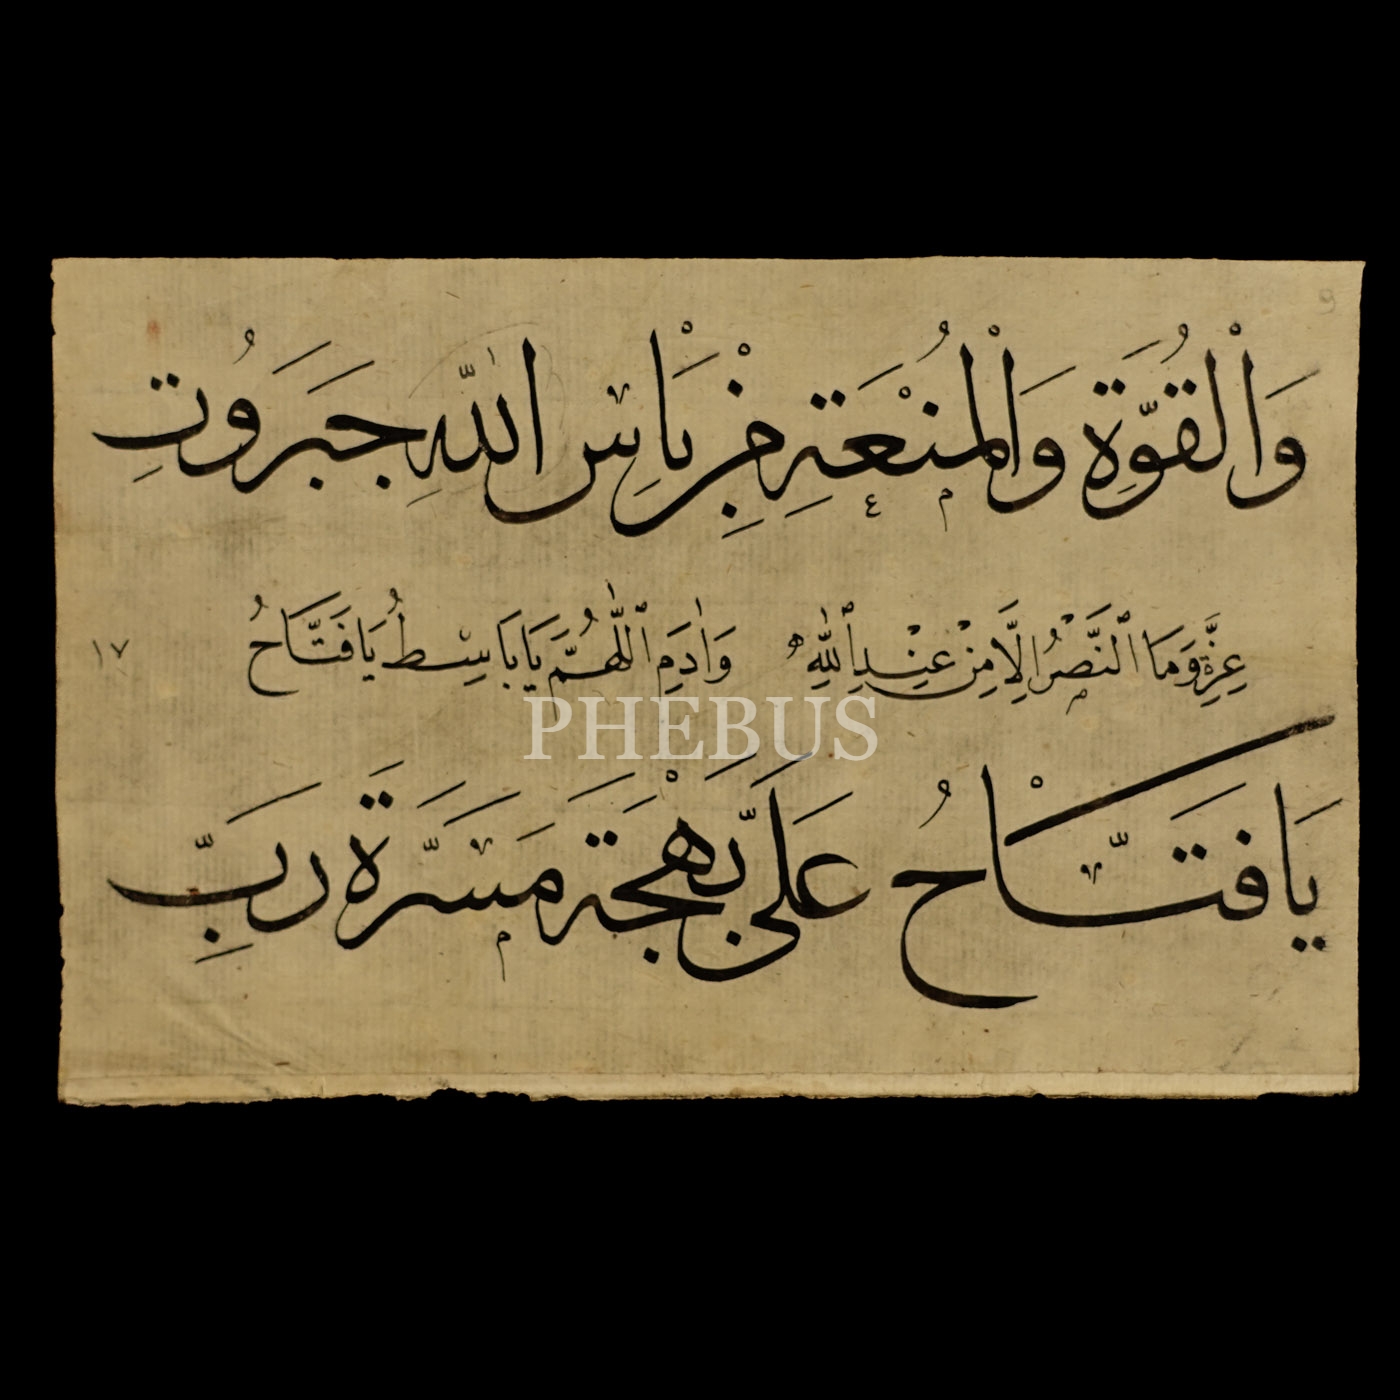 وَالْقُوَّةِ وَالْمُنْعَةِ مِنْ بَأْسِ اللّٰهِ جَبَرُوتِ
عِزَّةِ وَمَا ٱلنَّصْرُ اِلَّا مِنْ عِنْدِ ٱللّٰهِ وَاَدِمِ ٱللّٰهُمَّ يَا بَاسِطُ يَا فَتَّاحُ
١٧
PHEBUS
يَا فَتَّاحُ عَلَيَّ بَهْجَةَ مَسَرَّةَ رَبِّ
9